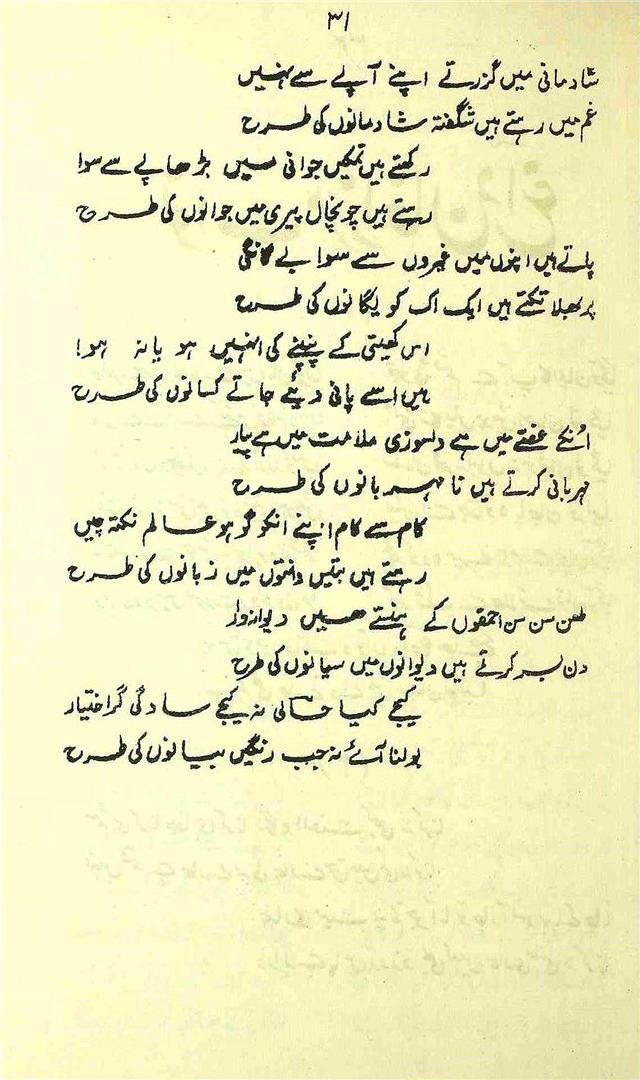 ۳۱
شادمانی میں گزرتے اپنے آپے سے نہیں
غم میں رہتے ہیں شگفتہ شادمانوں کی طرح
رکھتے ہیں تمکیں جوانی میں بڑھاپے سے سوا
رہتے ہیں چونچال پیری میں جوانوں کی طرح
پاتے ہیں اپنوں میں غیروں سے سوا بے گانگی
پر بھلا تکتے ہیں ایک اک کو یگانوں کی طرح
اس کھیتی کے پنپنے کی انہیں ہو یا نہ ہو!
ہیں اسے پانی دیئے جاتے کسانوں کی طرح
انکے غصے میں ہے دلسوزی ملامت میں ہے پیار
مہربانی کرتے ہیں نا مہربانوں کی طرح
کام سے کام اپنے انکو گو ہو عالم نکتہ چیں
رہتے ہیں بتیس دانتوں میں زبانوں کی طرح
طعن سن سن احمقوں کے ہنستے ہیں دیوانہ وار
دن بسر کرتے ہیں دیوانوں میں سیانوں کی طرح
کیجے کیا حالی نہ کیجے سادگی گر اختیار
بولنا آئے نہ جب رنگیں بیانوں کی طرح